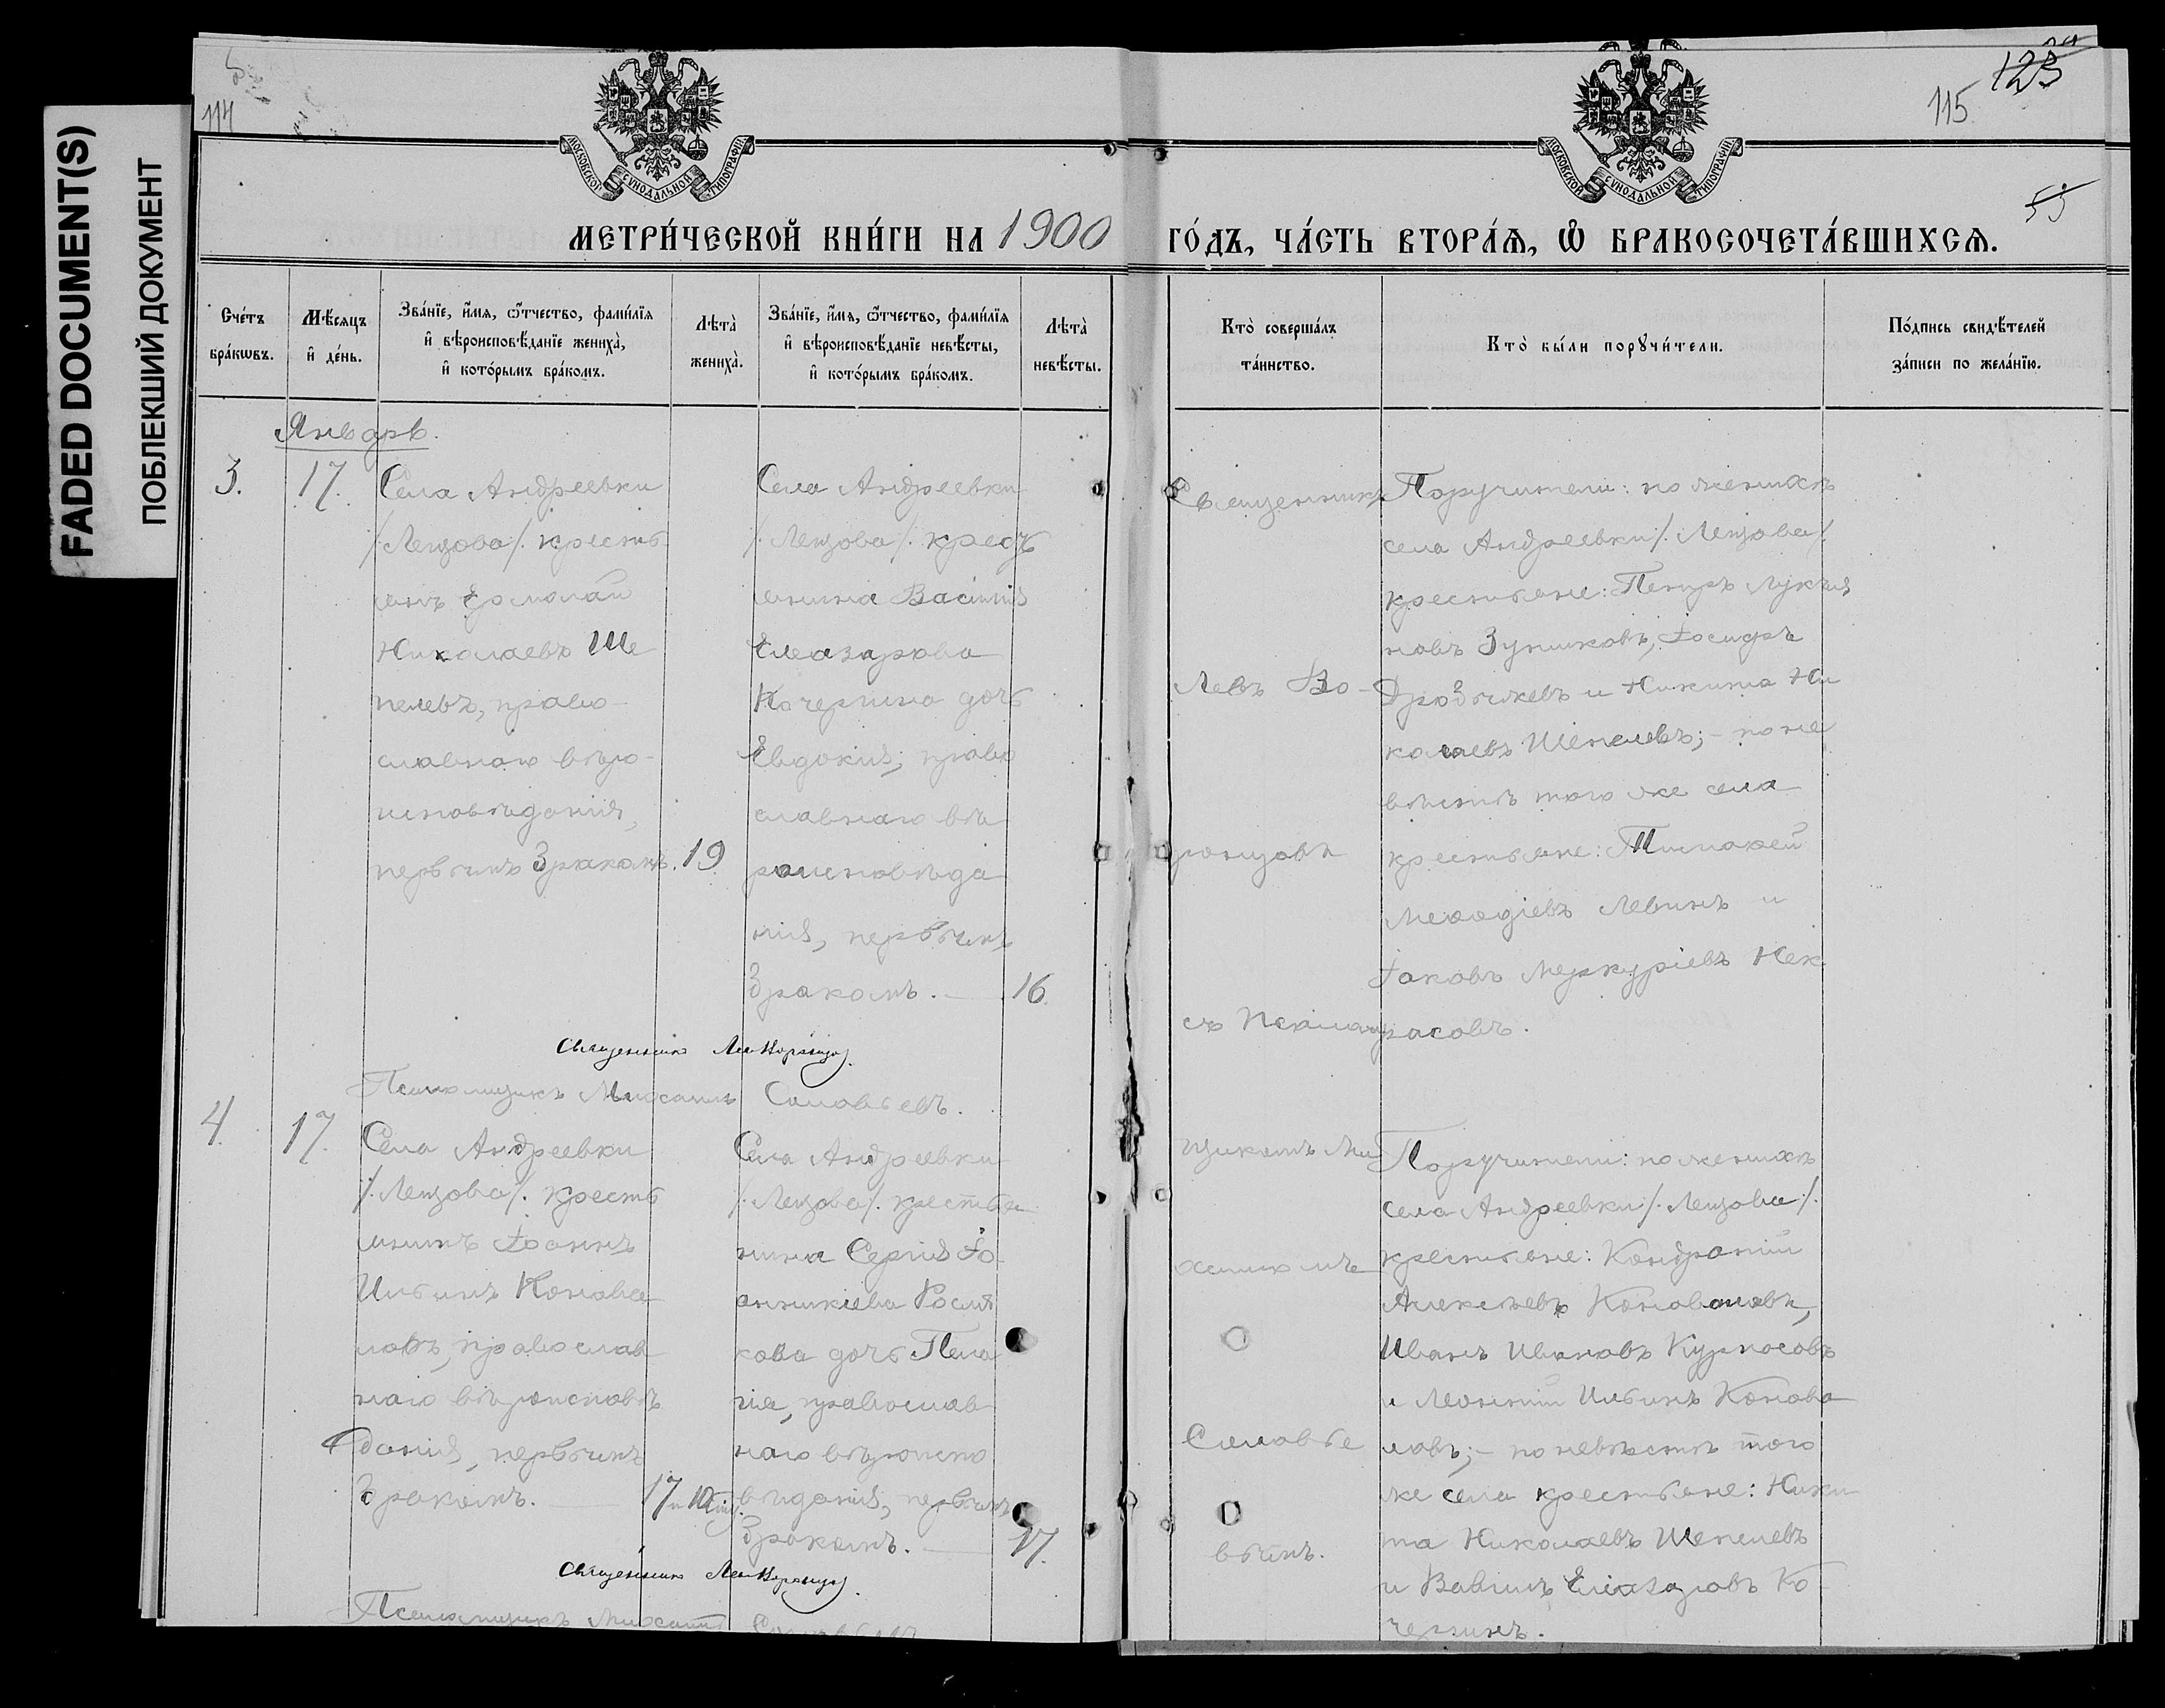 FADED DOCUMENT(S)
ПОБЛЕКШИЙ ДОКУМЕНТ
114
115
123
55
МОСКОВСКОЙ СѴНОДАЛЬНОЙ ТИПОГРАФІИ
МОСКОВСКОЙ СѴНОДАЛЬНОЙ ТИПОГРАФІИ
МЕТРИ́ЧЕСКОЙ КНИ́ГИ НА 1900 ГО́ДЪ, ЧА́СТЬ ВТОРА́Ѧ, Ѿ БРАКОСОЧЕТА́ВШИХСѦ.
Сче́тъ
бра́кѡвъ.
Мѣ́сяцъ
и҆ де́нь.
Зва́нїе, и҆́мѧ, ѻ҆́тчество, фами́лїѧ
и҆ вѣроисповѣ́данїе жениха̀,
и҆ кото́рымъ бра́комъ.
Лѣта̀
жениха̀.
Зва́нїе, и҆́мѧ, ѻ҆́тчество, фами́лїѧ
и҆ вѣроисповѣ́данїе невѣ́сты,
и҆ кото́рымъ бра́комъ.
Лѣта̀
невѣ́сты.
Кто̀ соверша́лъ
та́инство.
Кто̀ бы́ли порꙋчи́тели.
По́дпись свидѣ́телей
за́писи по жела́нїю.
Январь.
3.
17.
Села Андреевки
/.Лещова/. кресть
янъ Ермолай
Николаевъ Ше
пелевъ, право-
славнаго вѣро-
исповѣданія,
первымъ бракомъ.
19
Села Андреевки
/.Лещова/. крест
янина
Елеазарова
Кочергина дочь
Евдокія, право
славнаго вѣ
роисповѣда
нія, первымъ
бракомъ.
16.
Священникъ
Левъ Во-
ронцовъ
съ Псалом
щикомъ Ми
хаиломъ
Соловье
вымъ.
Поручители: по женихѣ
села Андреевки/.Лещова/
крестьяне: Петръ Лукья
новъ Зуниковъ,
и Никита Ни
колаевъ Шепелевъ; - по не
вѣстѣ того же села
крестьяне: Тимофей
Меѳодіевъ Левинъ и
Іаковъ Меркуріевъ Нек
расовъ.
Священникъ Левъ Воронцовъ.
Псаломщикъ Михаилъ Соловьевъ.
4.
17.
Села Андреевки
/.Лещова/. кресть
янинъ Іоаннъ
Ильинъ Конова
ловъ, православ
наго вѣроисповѣ
данія, первымъ
бракомъ.
17
Села Андреевки
/.Лещова/. крестья
нина Сергія Іо-
анникіева Росля
кова дочь Пела
гія, православ
наго вѣроиспо
вѣданія, первымъ
бракомъ.
17.
Поручители: по женихѣ
села Андреевки/.Лещова/.
крестьяне: Кондратій
Алексѣевъ Коноваловъ,
Иванъ Ивановъ Курносовъ
и Леонтій Ильинъ Конова
ловъ; - по невѣстѣ того
же села крестьяне: Ники
та Николаевъ Шепелевъ
и Вавилъ Елеазаровъ Ко-
чергинъ.
Священникъ Левъ Воронцовъ.
Псаломщикъ Михаилъ Соловьевъ